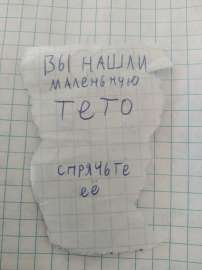 ВЫ НАШЛИ
МАЛЕНЬКУЮ
ТЕТО
СПРЯЧЬТЕ
ЕЁ